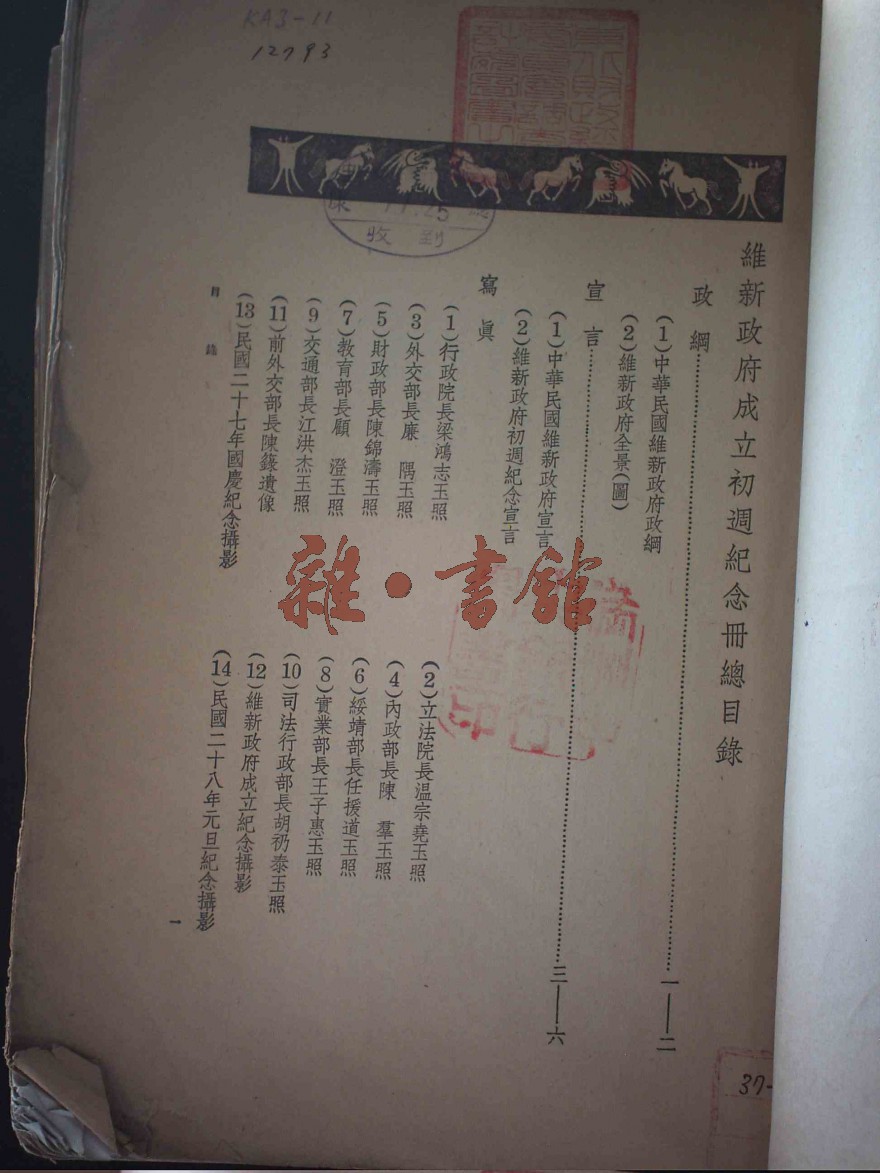 KA3-11
12793
收到
維新政府成立初週紀念冊總目錄
政綱…………一——二
(1)中華民國維新政府政綱
(2)維新政府全景(圖)
宣言…………三——六
(1)中華民國維新政府宣言
(2)維新政府初週紀念宣言
寫眞
(1)行政院長梁鴻志玉照
(2)立法院長温宗堯玉照
(3)外交部長廉　隅玉照
(4)內政部長陳　羣玉照
(5)財政部長陳錦濤玉照
(6)綏靖部長任援道玉照
(7)教育部長顧　澄玉照
(8)實業部長王子惠玉照
(9)交通部長江洪杰玉照
(10)司法行政部長胡礽泰玉照
(11)前外交部長陳籙遺像
(12)維新政府成立紀念攝影
(13)民國二十七年國慶紀念攝影
(14)民國二十八年元旦紀念攝影
目錄
一
雜·書館
37-